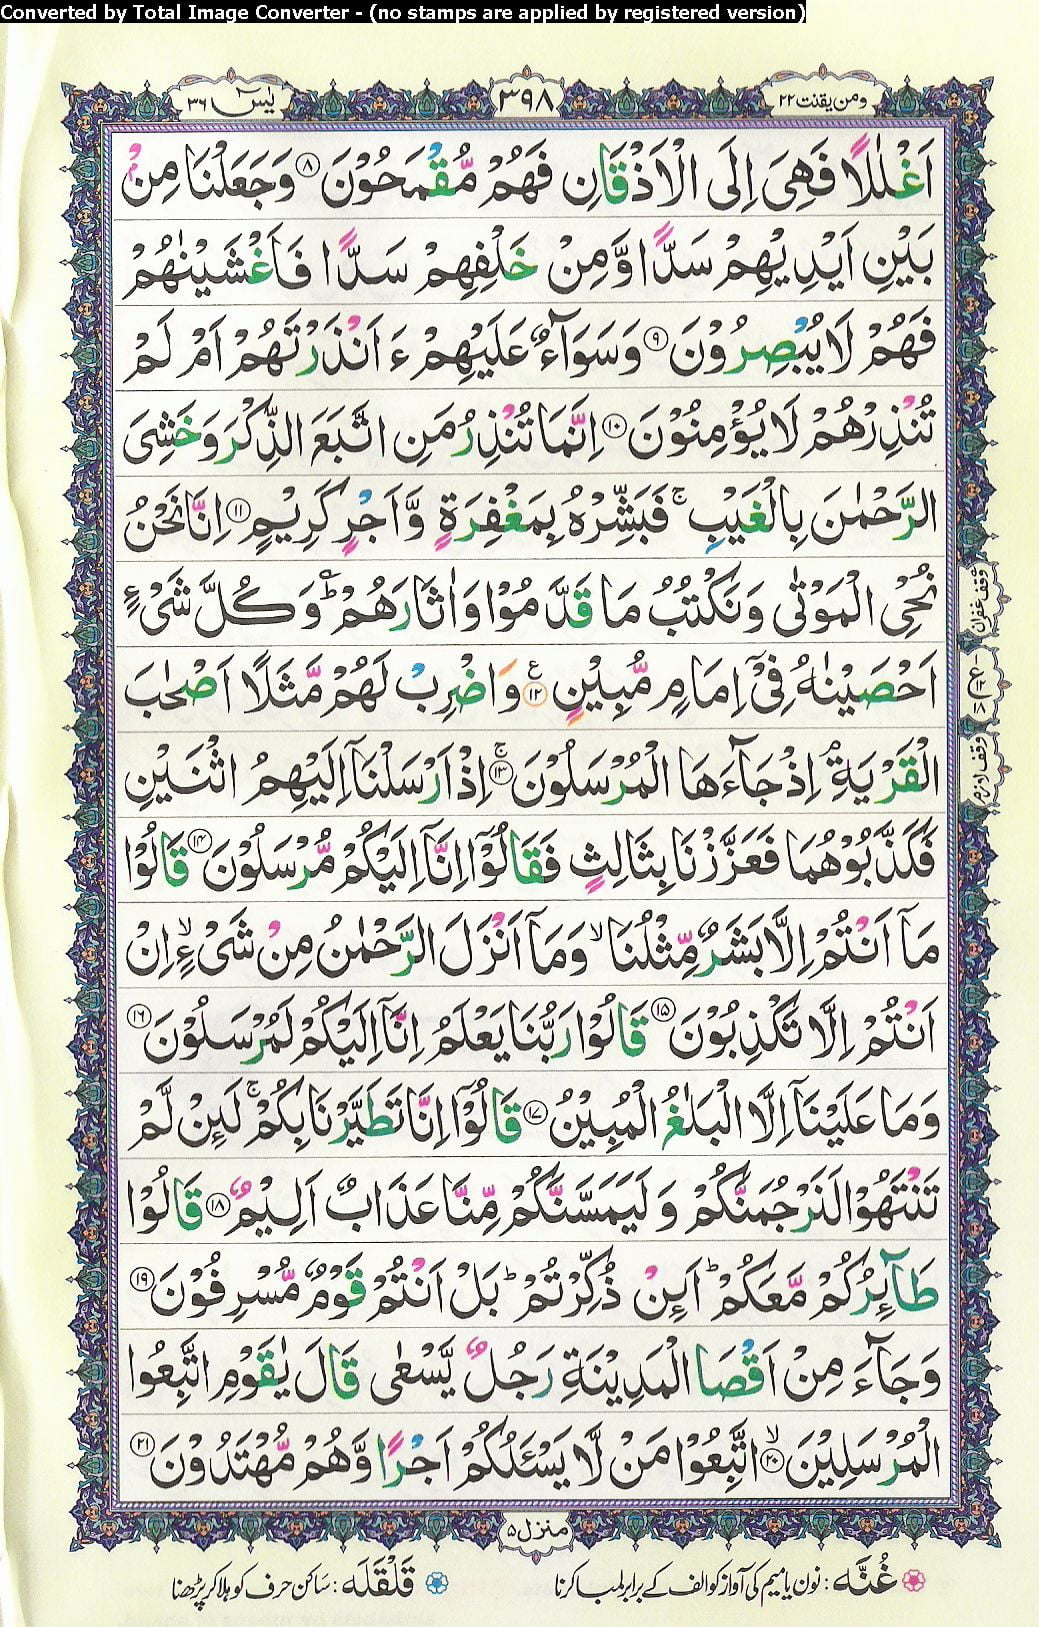 Converted by Total Image Converter - (no stamps are applied by registered version)
ومن یقنت ۲۲
۳۹۸
یٰسٓ ۳۶
اَغْلٰلًا فَهِیَ اِلَی الْاَذْقَانِ فَهُمْ مُّقْمَحُوْنَ ﴿۸﴾ وَجَعَلْنَا مِنْۢ
بَیْنِ اَیْدِیْهِمْ سَدًّا وَّمِنْ خَلْفِهِمْ سَدًّا فَاَغْشَیْنٰهُمْ
فَهُمْ لَا یُبْصِرُوْنَ ﴿۹﴾ وَسَوَآءٌ عَلَیْهِمْ ءَاَنْذَرْتَهُمْ اَمْ لَمْ
تُنْذِرْهُمْ لَا یُؤْمِنُوْنَ ﴿۱۰﴾ اِنَّمَا تُنْذِرُ مَنِ اتَّبَعَ الذِّكْرَ وَخَشِیَ
الرَّحْمٰنَ بِالْغَیْبِ ۚ فَبَشِّرْهُ بِمَغْفِرَةٍ وَّاَجْرٍ كَرِیْمٍ ﴿۱۱﴾ اِنَّا نَحْنُ
نُحْیِ الْمَوْتٰی وَنَكْتُبُ مَا قَدَّمُوْا وَاٰثَارَهُمْ ؕ وَكُلَّ شَیْءٍ
اَحْصَیْنٰهُ فِیْۤ اِمَامٍ مُّبِیْنٍ ﴿۱۲﴾ ع وَاضْرِبْ لَهُمْ مَّثَلًا اَصْحٰبَ
الْقَرْیَةِ ۘ اِذْ جَآءَهَا الْمُرْسَلُوْنَ ﴿۱۳﴾ ۚ اِذْ اَرْسَلْنَاۤ اِلَیْهِمُ اثْنَیْنِ
فَكَذَّبُوْهُمَا فَعَزَّزْنَا بِثَالِثٍ فَقَالُوْۤا اِنَّاۤ اِلَیْكُمْ مُّرْسَلُوْنَ ﴿۱۴﴾ قَالُوْا
مَاۤ اَنْتُمْ اِلَّا بَشَرٌ مِّثْلُنَا ۙ وَمَاۤ اَنْزَلَ الرَّحْمٰنُ مِنْ شَیْءٍ ۙ اِنْ
اَنْتُمْ اِلَّا تَكْذِبُوْنَ ﴿۱۵﴾ قَالُوْا رَبُّنَا یَعْلَمُ اِنَّاۤ اِلَیْكُمْ لَمُرْسَلُوْنَ ﴿۱۶﴾
وَمَا عَلَیْنَاۤ اِلَّا الْبَلٰغُ الْمُبِیْنُ ﴿۱۷﴾ قَالُوْۤا اِنَّا تَطَیَّرْنَا بِكُمْ ۚ لَئِنْ لَّمْ
تَنْتَهُوْا لَنَرْجُمَنَّكُمْ وَلَیَمَسَّنَّكُمْ مِّنَّا عَذَابٌ اَلِیْمٌ ﴿۱۸﴾ قَالُوْا
طَآئِرُكُمْ مَّعَكُمْ ؕ اَئِنْ ذُكِّرْتُمْ ؕ بَلْ اَنْتُمْ قَوْمٌ مُّسْرِفُوْنَ ﴿۱۹﴾
وَجَآءَ مِنْ اَقْصَا الْمَدِیْنَةِ رَجُلٌ یَّسْعٰی قَالَ یٰقَوْمِ اتَّبِعُوا
الْمُرْسَلِیْنَ ﴿۲۰﴾ ۙ اتَّبِعُوْا مَنْ لَّا یَسْئَلُكُمْ اَجْرًا وَّهُمْ مُّهْتَدُوْنَ ﴿۲۱﴾
وقف غفران
ع
وقف لازم
منزل ۵
غُنَّه : نون یا میم کی آواز کو الف کے برابر لمبا کرنا
قَلْقَلَه : ساکن حرف کو ہلا کر پڑھنا